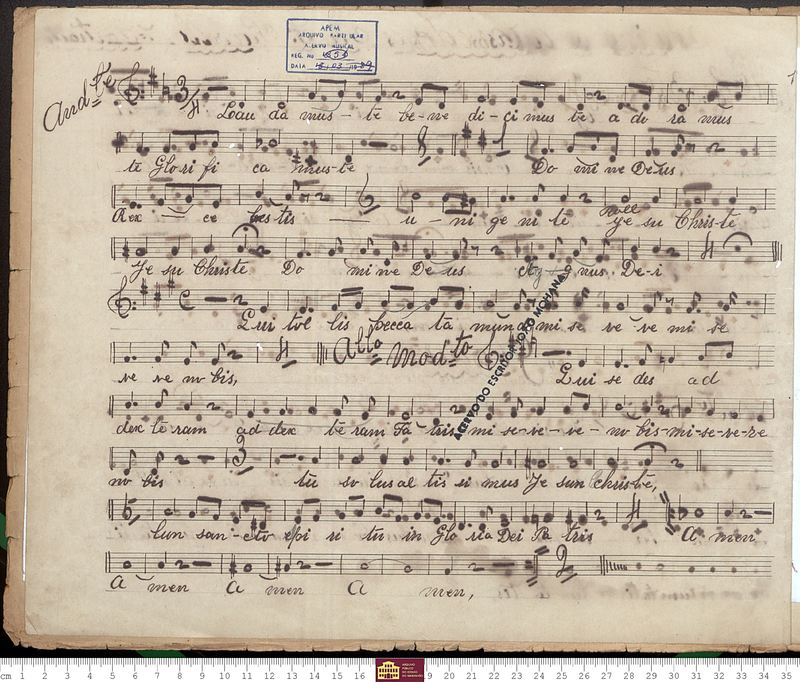 APEM
ARQUIVO PARTICULAR
ACERVO MUSICAL
REG. No
DATA
And.te
Lau da mus - te be - ne di - ci mus te a do ra mus
te Glo ri fi ca mus - te Do mi ne De us
Rex ce les tis u - ni ge ni te Ye su Chris - te
Ye su Christe Do mi ne De us Ag nus De - i
Qui tol lis pecca ta mun mi se re - re mi se
re re no bis, All.o Mod.to Qui se des ad
dex te ram ad dex te ram Pa tris mi - se - re - re - no bis - mi - se - re - re
no bis tu so lus al tis si mus Ye sun christe,
Cun san - cto spi ri tu in Glo ria Dei Pa tris A men
A men A men A men,
ACERVO DO ESCRITOR JOÃO MOHANA
cm 1 2 3 4 5 6 7 8 9 10 11 12 13 14 15 16 19 20 21 22 23 24 25 26 27 28 29 30 31 32 33 34 35